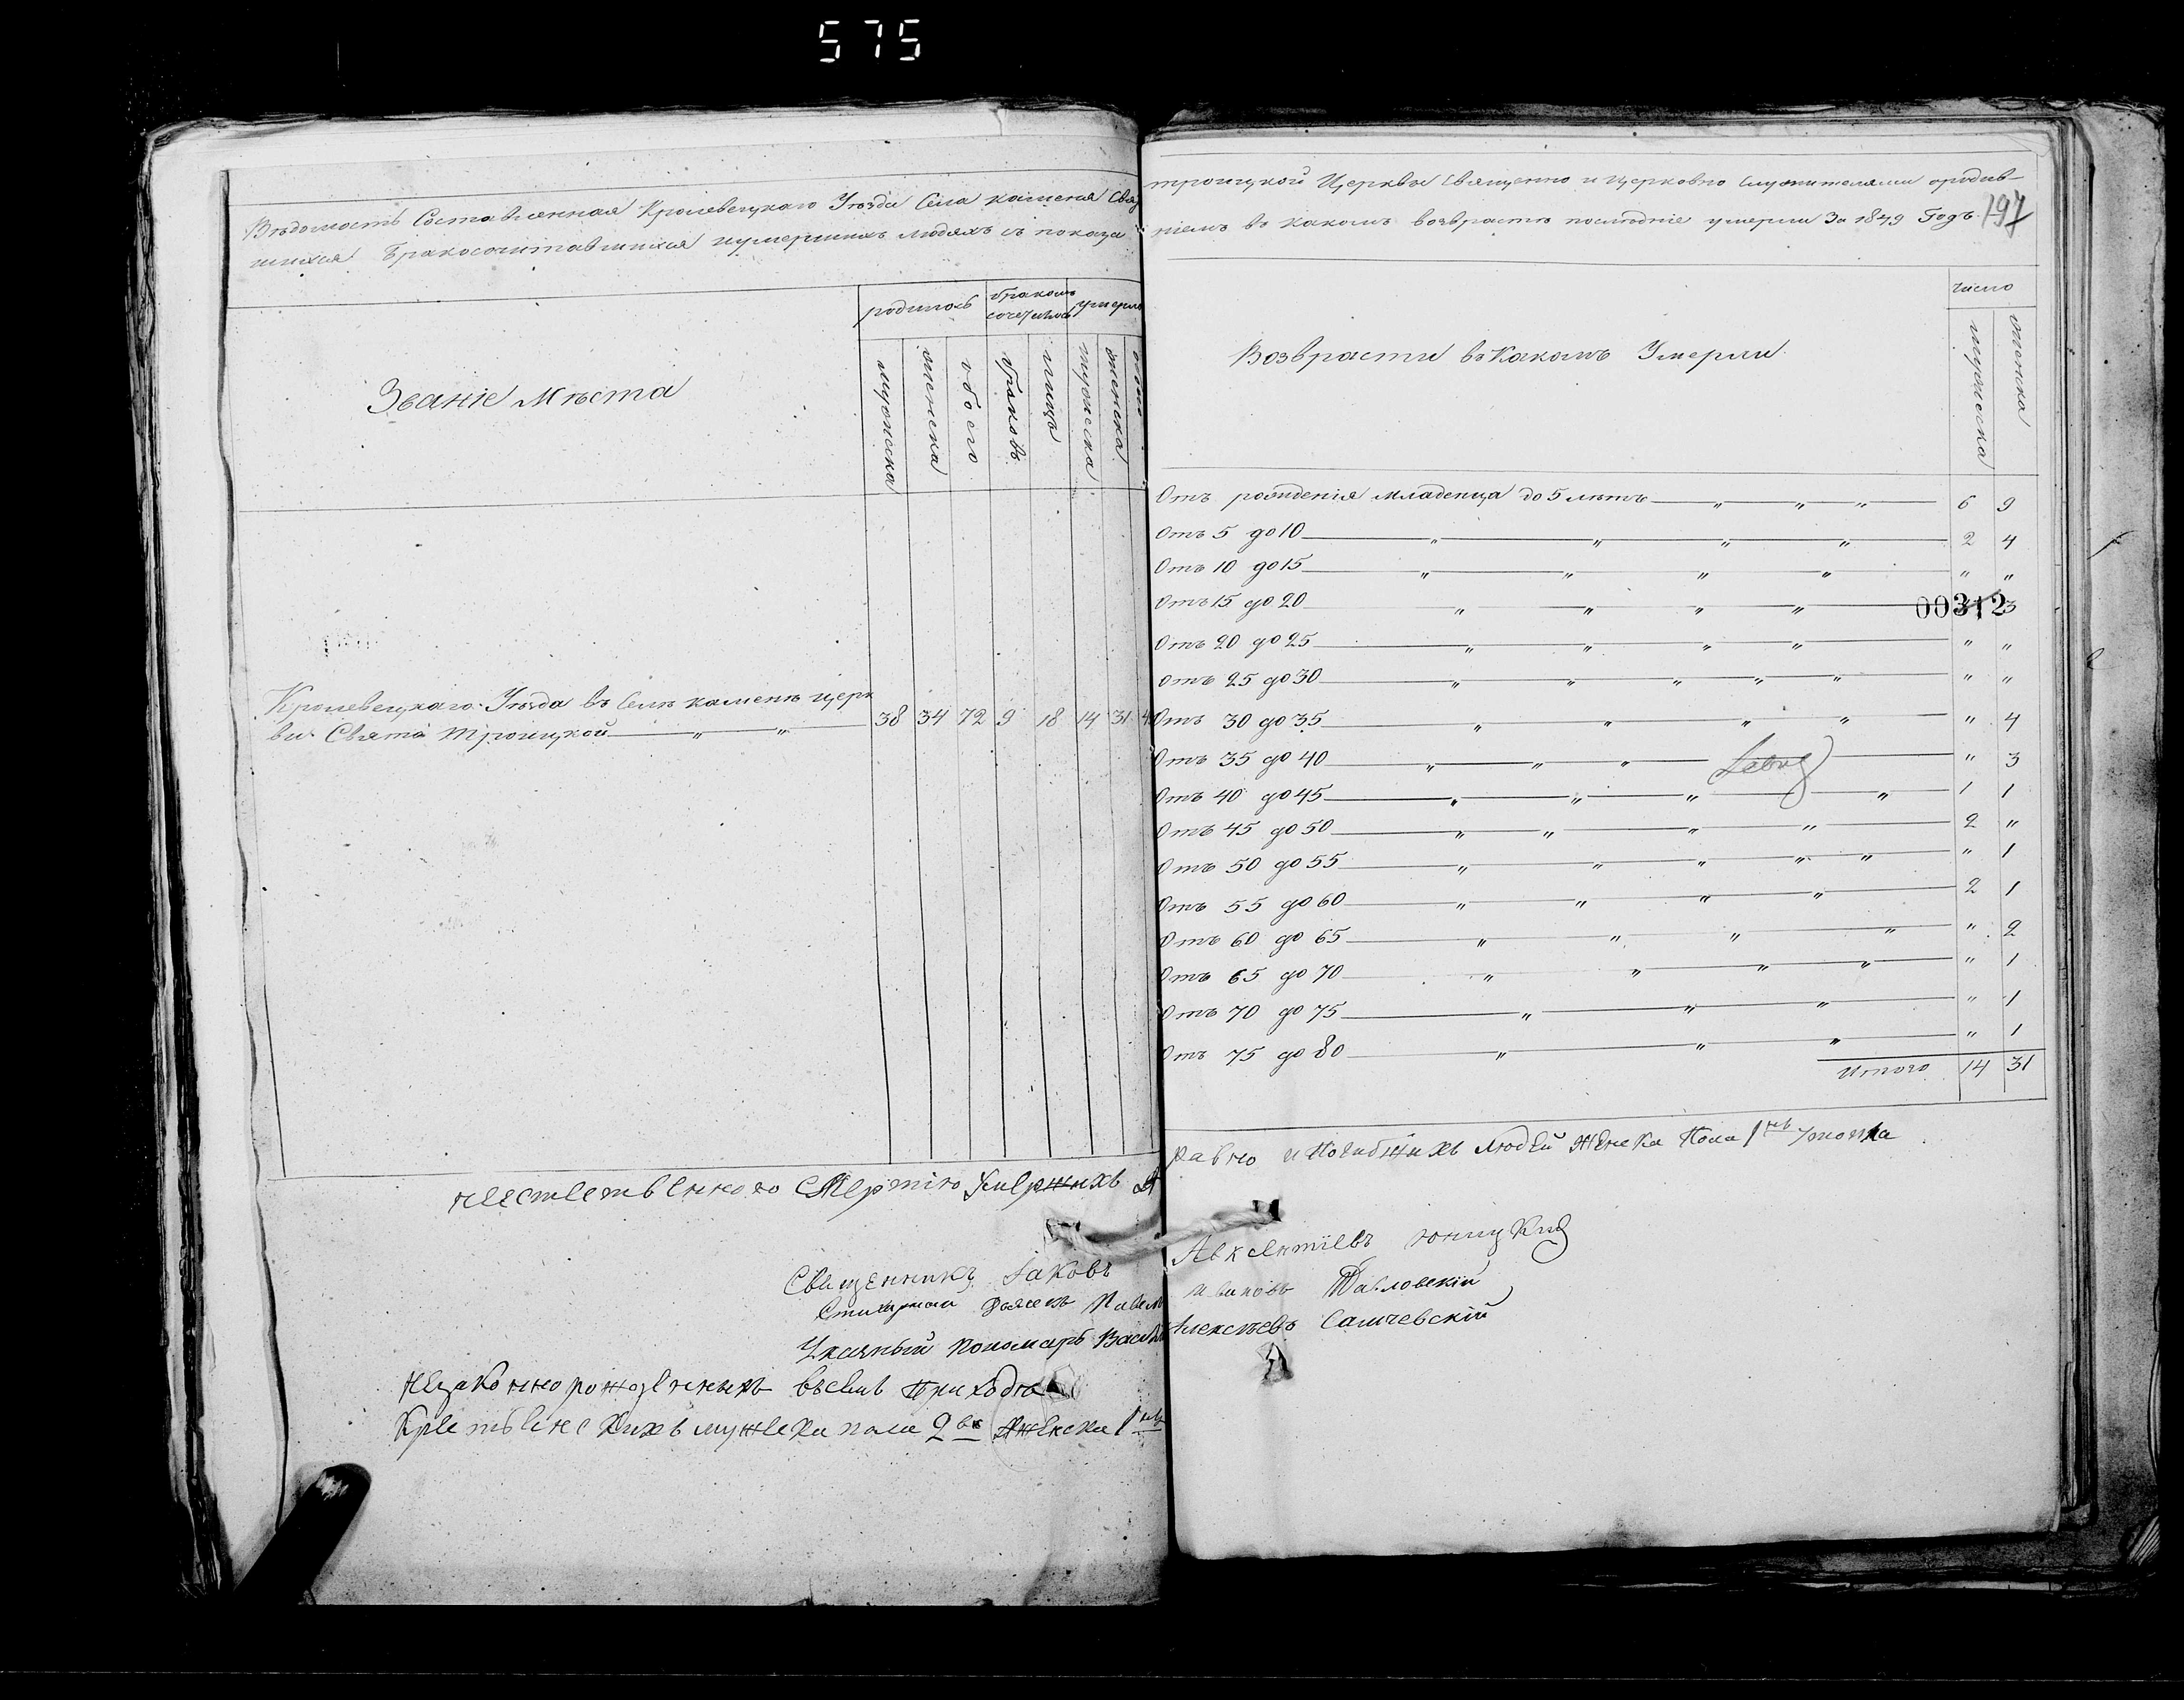 575
Вѣдомость Составленная Кролевецкаго Уѣзда Села каменя Свя
шихся Бракосочитавшихся иумершихъ людяхъ съ показа
Званіе Мѣста
родилось
бракомъ сочетались
умерло
мужеска
женска
обоего
браковъ
лицъ
мужеска
женска
Кролевецкаго Уѣзда въ Селѣ каменѣ церк
ви Свято Троицкой 38 34 72 9 18 14 31 4
неестественною Смертію Умершихъ
Священникъ Іаковъ
Стихарный Дьячекъ Павелъ
Указный Пономарь Васил
Незаконнорожденныхъ въсемъ приходѣ
мужеска пола 2 женска 1
троицкой Церквы Священно и церковно служителями ородив-
ніемъ въ какомъ возврастѣ послѣдніе умерли За 1849 Годъ.
197
Возврасти въ Какомъ Умерли
число
мужеска
женска
Отъ рожденія младенца до 5 лѣтъ " " " 6 9
Отъ 5 до 10 " " " " 2 4
Отъ 10 до 15 " " " " " "
Отъ 15 до 20 " " " " 3
00312
Отъ 20 до 25 " " " " " "
Отъ 25 до 30 " " " " " " "
Отъ 30 до 35 " " " " " 4
Отъ 35 до 40 " " " " 3
Отъ 40 до 45 " " " " 1 1
Отъ 45 до 50 " " " " 2 "
Отъ 50 до 55 " " " " " " 1
Отъ 55 до 60 " " " " 2 1
Отъ 60 до 65 " " " " " 2
Отъ 65 до 70 " " " " " 1
Отъ 70 до 75 " " " " 1
Отъ 75 до 80 " " " " 1
Итого 14 31
Равно и Погибшихъ Людей Женска Пола 1
Авксентіевъ Юницкій
Ивановъ Павловскій
Алексѣевъ Самчевскій